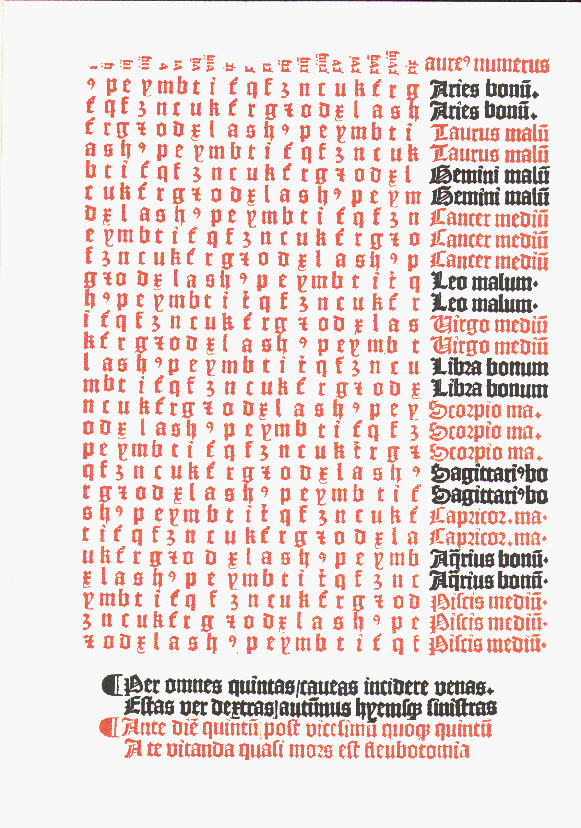 aureꝰ numerus
ꝰ p e y m b t i ſ q f ʒ n c u k ſ r g Aries bonū.
ſ q f ʒ n c u k ſ r g ⁊ o d x l a s h Aries bonū.
ſ r g ⁊ o d x l a s h ꝰ p e y m b t i Taurus malū
a s h ꝰ p e y m b t i ſ q f ʒ n c u k Taurus malū
b t i ſ q f ʒ n c u k ſ r g ⁊ o d x l Gemini malū
c u k ſ r g ⁊ o d x l a s h ꝰ p e y m Gemini malū
d x l a s h ꝰ p e y m b t i ſ q f ʒ n Cancer mediū
e y m b t i ſ q f ʒ n c u k ſ r g ⁊ o Cancer mediū
f ʒ n c u k ſ r g ⁊ o d x l a s h ꝰ p Cancer mediū
g ⁊ o d x l a s h ꝰ p e y m b t i ſ q Leo malum.
h ꝰ p e y m b t i ſ q f ʒ n c u k ſ r Leo malum.
i ſ q f ʒ n c u k ſ r g ⁊ o d x l a s Virgo mediū
k ſ r g ⁊ o d x l a s h ꝰ p e y m b t Virgo mediū
l a s h ꝰ p e y m b t i ſ q f ʒ n c u Libra bonum
m b t i ſ q f ʒ n c u k ſ r g ⁊ o d x Libra bonum
n c u k ſ r g ⁊ o d x l a s h ꝰ p e y Scorpio ma.
o d x l a s h ꝰ p e y m b t i ſ q f ʒ Scorpio ma.
p e y m b t i ſ q f ʒ n c u k ſ r g ⁊ Scorpio ma.
q f ʒ n c u k ſ r g ⁊ o d x l a s h ꝰ Sagittariꝰ bo
r g ⁊ o d x l a s h ꝰ p e y m b t i ſ Sagittariꝰ bo
s h ꝰ p e y m b t i ſ q f ʒ n c u k ſ Capricor. ma.
t i ſ q f ʒ n c u k ſ r g ⁊ o d x l a Capricor. ma.
u k ſ r g ⁊ o d x l a s h ꝰ p e y m b Aq̄rius bonū.
x l a s h ꝰ p e y m b t i ſ q f ʒ n c Aq̄rius bonū.
y m b t i ſ q f ʒ n c u k ſ r g ⁊ o d Piſcis mediū.
ʒ n c u k ſ r g ⁊ o d x l a s h ꝰ p e Piſcis mediū.
⁊ o d x l a s h ꝰ p e y m b t i ſ q f Piſcis mediū.
¶ Per omnes quintas/caueas incidere venas.
Eſtas ver dextras/autūnus hyemſqꝫ ſiniſtras
¶ Ante diē quintū poſt viceſimū quoqꝫ quintū
A te vitanda quaſi mors eſt fleubotomia